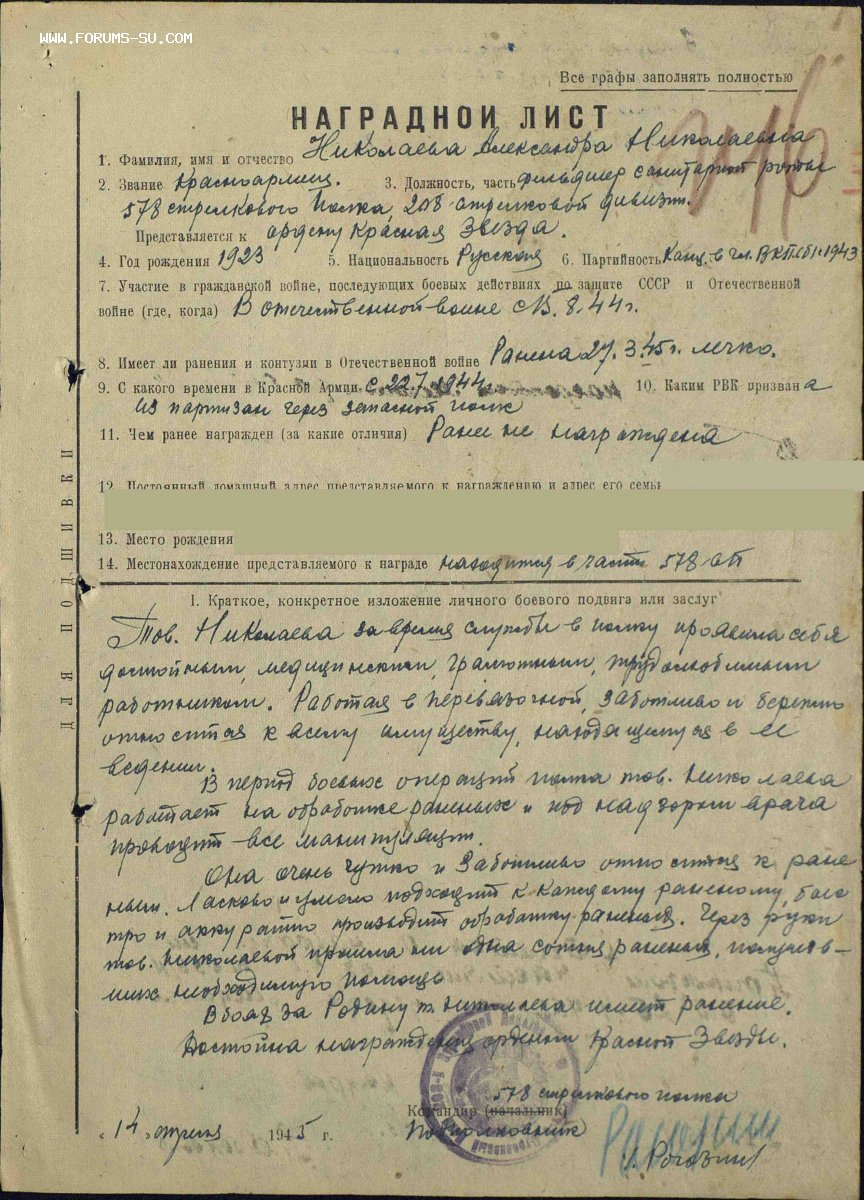 WWW.FORUMS-SU.COM
Все графы заполнять полностью
НАГРАДНОЙ ЛИСТ
1. Фамилия, имя и отчество Николаева Александра Николаевна
2. Звание красноармеец. 3. Должность, часть фельдшер санитарной роты
578 стрелкового полка, 208 стрелковой дивизии.
Представляется к ордену Красная Звезда.
4. Год рождения 1923 5. Национальность Русская 6. Партийность Канд. в чл. ВКП(б) 1943
7. Участие в гражданской войне, последующих боевых действиях по защите СССР и Отечественной
войне (где, когда) В отечественной войне с 8.44 г.
8. Имеет ли ранения и контузии в Отечественной войне Ранена 27.3.45 г. легко.
9. С какого времени в Красной Армии с 22.7.1944 г. 10. Каким РВК призван а
Из партизан через запасной полк
11. Чем ранее награжден (за какие отличия) Ранее не награждена
12. Постоянный домашний адрес представляемого к награждению и адрес его семьи
13. Место рождения
14. Местонахождение представляемого к награде находится в части 578 сп
ДЛЯ ПОДШИВКИ
1. Краткое, конкретное изложение личного боевого подвига или заслуг
Тов. Николаева за время службы в полку проявила себя
достойным, медицинским, грамотным, трудолюбивым
работником. Работая в перевязочной, заботливо и бережно
относится к всему имуществу, находящемуся в ее
ведении.
В период боевых операций полка тов. Николаева
работает на обработке раненых и под надзором врача
проводит все манипуляции.
Она очень чутко и заботливо относится к ране
ным. Ласково и умело подходит к каждому раненому, быс
тро и аккуратно производит обработку ранения. Через руки
тов. Николаевой прошла ни одна сотня раненых, получив-
ших необходимую помощь
В боях за Родину т. Николаева имеет ранение.
Достойна награждения орденом Красной Звезды.
578 стрелкового полка
Командир (начальник)
Подполковник
"14" апреля 1945 г.
Рогозин